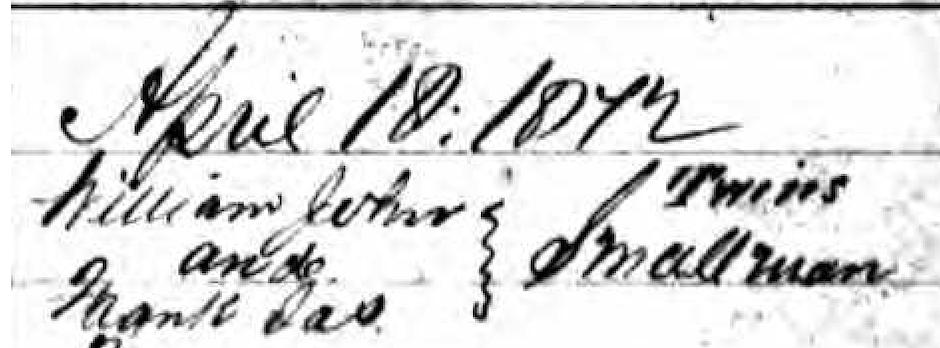 April 18. 1872
William John
and
Frank Jas.
Twins
Smallman